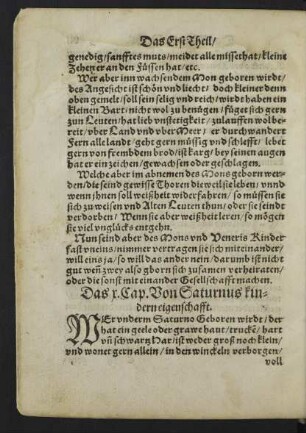 Das Erst Theil/
genedig/sanfftes muts/meidet alle missethat/kleine
Zehen er an den Füssen hat/etc.
Wer aber inn wachsendem Mon geboren wirdt/
des Angesicht ist schön vnd liecht/doch kleiner denn
oben gemelt/soll sein selig vnd reich/wirdt haben ein
kleinen Bart/nicht wol zu benügen/füget sich gern
zun Leuten/hat lieb vnstetigkeit/zulauffen wolbe-
reit/vber Land vnd vber Meer/er durchwandert
Fern alle landt/geht gern müssig vnd schlafft/lebet
gern von frembdem brod/ist karg/bey seinen augen
hat er ein zeichen/gewachsen oder geschlagen.
Welche aber im abnemen des Mons geborn wer-
den/die seind gewisse Thoren die weil sie leben/vnnd
wenn jhnen soll weißheit widerfahren/so müssen sie
sich zu weisen vnd Alten Leuten thun/oder sie seindt
verdorben/Wenn sie aber weißheit leren/so mögen
sie viel vnglücks entgehn.
Nun seind aber des Mons vnd Veneris Kinder
fast vneins/nimmer vertragen sie sich miteinander/
will eins ja/so will das ander nein/darumb ist nicht
gut weñ zwey also gborn sich zusamen verheiraten/
oder die sonst mit einander Gesellschafft machen.
Das x. Cap. Von Saturnus kin-
dern eigenschafft.
WEr vnderm Saturno Geboren wirdt/der
hat ein geele oder grawe haut/truckẽ/hart
vñ schwartz Har/ist weder groß noch klein/
vnd wonet gern allein/in den winckeln verborgen/
voll